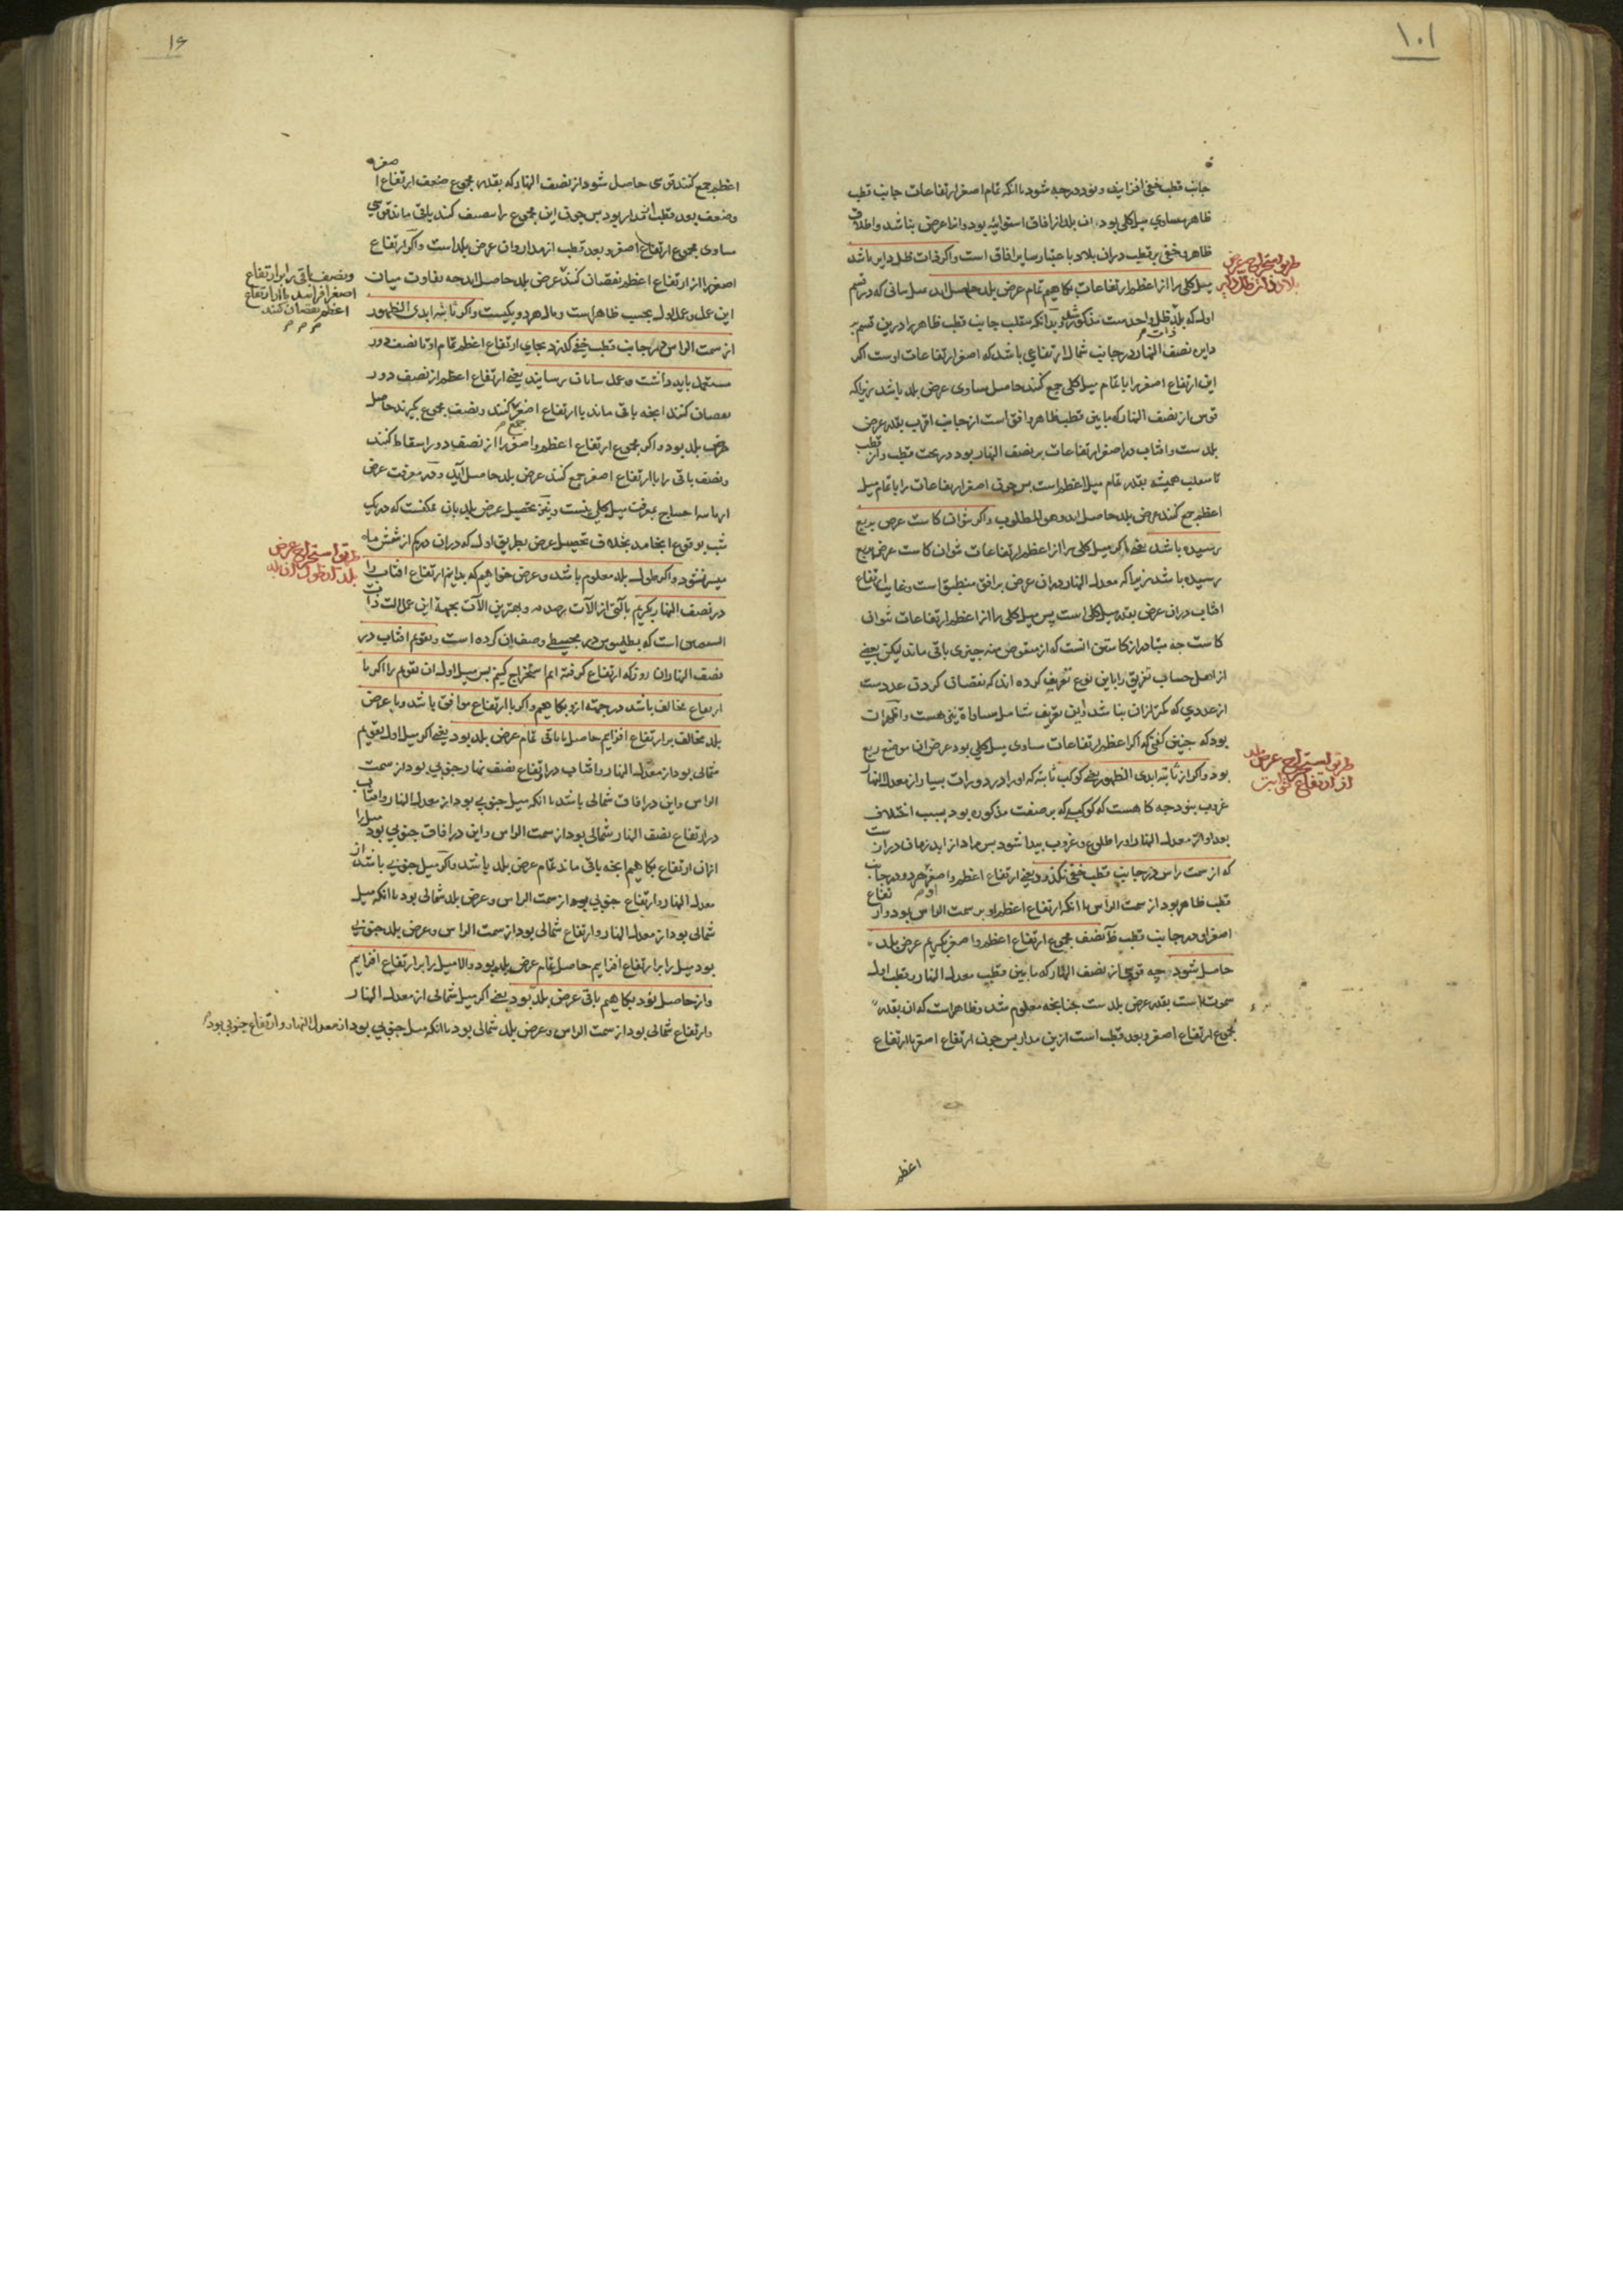 ١٠١
جانب قطب خفی افزایند و نود درجه شود یا انکه تمام اصغر ارتفاعات جانب قطب
ظاهر مساوی میل کلی بود ان بلد از افاق استوائیه بود و انرا عرض نباشد و اطلاق
ظاهر و خفی بر قطب دران بلاد باعتبار سایر افاق است واکر ذات ظل دایر باشد
طریق استخراج عرض
بلاد ذات ظل دایر
میل کلی را از اعظم ارتفاعات بکاهیم تمام عرض بلد حاصل اید
اول که بلد ذات ظل واحدست مذکور شد و بدانکه جانب قطب ظاهر را درین قسم بر
دایره نصف النهار در جانب شمال ارتفاعی باشد که اصغر ارتفاعات اوست اکر
این ارتفاع اصغر را با تمام میل کلی جمع کنند حاصل مساوی عرض بلد باشد زیراکه
قوس از نصف النهار که مابین قطب ظاهر و افق است از جانب اقرب بقدر عرض
بلدست و افتاب در اصغر ارتفاعات بر نصف النهار بود در تحت قطب و از قطب
همیشه بقدر تمام میل اعظم است پس چون اصغر ارتفاعات را با تمام میل
اعظم جمع کنند عرض بلد حاصل اید وهو المطلوب واکر نتوان کاست عرض بربع
رسیده باشد یعنی اکر میل کلی را از اعظم ارتفاعات نتوان کاست عرض بربع
رسیده باشد زیراکه معدل النهار دران عرض بر افق منطبق است و غایت ارتفاع
افتاب دران عرض بقدر میل کلی است پس میل کلی را از اعظم ارتفاعات نتوان
کاست چه متبادر از کاستن انست که از منقوص منه چیزی باقی ماند لیکن بعضی
از اهل حساب تفریق را باین نوع تعریف کرده اند که نقصان کردن عددست
از عددی که کمتر ازان نباشد و این تعریف شامل مساواة نیز هست و اظهر ان
بود که چنین کفتی که اکر اعظم ارتفاعات مساوی میل کلی بود عرض ان موضع ربع
بود واکر از ثابته ابدی الظهور یعنی کوکب ثابته که اورا در دورات بسیار از معدل النهار
طریق استخراج عرض بلد
از ارتفاع ثوابت
غروب نبود چه کاه هست که کوکبی که بر صفت مذکوره بود بسبب اختلاف
بعد او از معدل النهار او را طلوع و غروب پیدا شود پس مراد از ابد زمان دراز
که از سمت راس در جانب قطب خفی نکذرد یعنی ارتفاع اعظم و اصغر او هر دو در جانب
قطب ظاهر بود از سمت الراس یا انکه ارتفاع اعظم او بر سمت الراس بود و ارتفاع
اصغر او در جانب قطب ظاهر نصف مجموع ارتفاع اعظم و اصغر بکیریم عرض بلد
حاصل شود چه قوسی از نصف النهار که مابین قطب معدل النهار و قطب اول
سموتست بقدر عرض بلدست چنانچه معلوم شد و ظاهرست که ان بقدر
مجموع ارتفاع اصغر و بعد قطب است ازین مدار پس چون ارتفاع اصغر با ارتفاع
اعظم
١٦
اعظم جمع کنند قوسی حاصل شود از نصف النهار که بقدر مجموع ضعف ارتفاع اصغر
و ضعف بعد قطب از مدار بود پس چون این مجموع را نصف کنند باقی ماند قوسی
مساوی مجموع ارتفاع اصغر و بعد قطب از مدار و ان عرض بلد است واکر ارتفاع
اصغر را از ارتفاع اعظم نقصان کنند
ونصف باقی را بر ارتفاع
اصغر افزایند یا از ارتفاع
اعظم نقصان کنند
عرض بلد حاصل اید چه تفاوت میان
این عمل و عمل اول بحسب ظاهر است و مال هر دو یکیست واکر ثابته ابدی الظهور
از سمت الراس در جانب قطب خفی کذرد بجای ارتفاع اعظم تمام او تا نصف دور
مستعمل باید داشت و عمل بپایان رسانید یعنی ارتفاع اعظم از نصف دور
نقصان کنند انچه باقی ماند با ارتفاع اصغر جمع کنند و نصف مجموع کیرند حاصل
عرض بلد بود واکر مجموع ارتفاع اعظم و اصغر را از نصف دور اسقاط کنند
و نصف باقی را با ارتفاع اصغر جمع کنند عرض بلد حاصل آید و در معرفت عرض
احتیاج بمعرفت میل کلی نیست و نیز تحصیل عرض بلد بان ممکنست که در یک
شب بوقوع انجامد بخلاف تحصیل عرض بطریق اول که دران در کم از شش ماه
میسر نشود واکر طول بلد معلوم باشد و عرض خواهیم که بدانیم ارتفاع افتاب را
طریق استخراج عرض
بلد از طول ان بلد
در نصف النهار بکیریم بآلتی از الآت رصدیه و بهترین الآت بجهة این عمل الت ذات
الشعبتین است که بطلمیوس در مجسطی وصف ان کرده است و تقویم افتاب در
نصف النهار ان روز که ارتفاع کرفته ایم استخراج کنیم پس میل اول ان تقویم را اکر با
ارتفاع مخالف باشد در جهت ازو بکاهیم واکر با ارتفاع موافق باشد و با عرض
بلد مخالف بر ارتفاع افزاییم حاصل یا باقی تمام عرض بلد بود یعنی اکر میل اول تقویم
شمالی بود از معدل النهار و افتاب در ارتفاع نصف نهار جنوبی بود از سمت
الراس و این در افاق شمالی باشد یا انکه میل جنوبی بود از معدل النهار و افتاب
در ارتفاع نصف النهار شمالی بود از سمت الراس و این در افاق جنوبی بود میل را
ازان ارتفاع بکاهیم انچه باقی ماند تمام عرض بلد باشد واکر میل جنوبی باشد از
معدل النهار و ارتفاع جنوبی بود از سمت الراس و عرض بلد شمالی بود یا انکه میل
شمالی بود از معدل النهار و ارتفاع شمالی بود از سمت الراس و عرض بلد جنوبی
بود میل را بر ارتفاع افزاییم حاصل تمام عرض بلد بود والا میل را بر ارتفاع افزاییم
و از حاصل نود بکاهیم باقی عرض بلد بود یعنی اکر میل شمالی از معدل النهار
و ارتفاع شمالی بود از سمت الراس و عرض بلد شمالی بود یا انکه میل جنوبی بود از معدل النهار و ارتفاع جنوبی بود